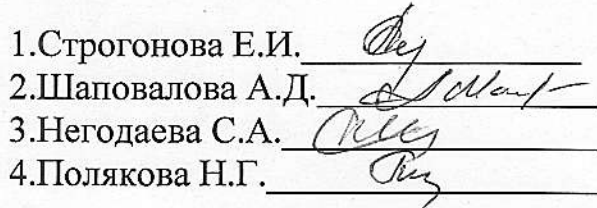 1.Строгонова Е.И.
2.Шаповалова А.Д.
3.Негодаева С.А.
4.Полякова Н.Г.